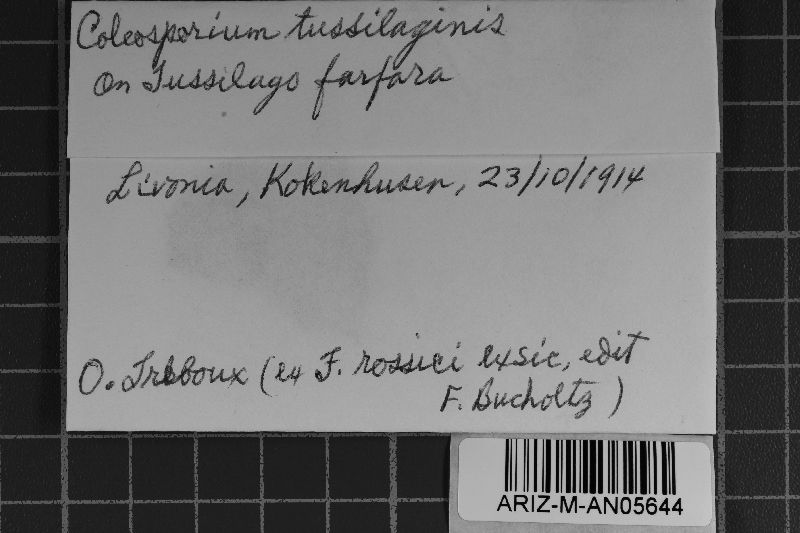 Coleosporium tussilaginis
On Tussilago farfara
Livonia, Kokenhusen, 23/10/1914
O. Treboux (ex F. rossici exsic, edit
F. Bucholtz)
ARIZ-M-AN05644